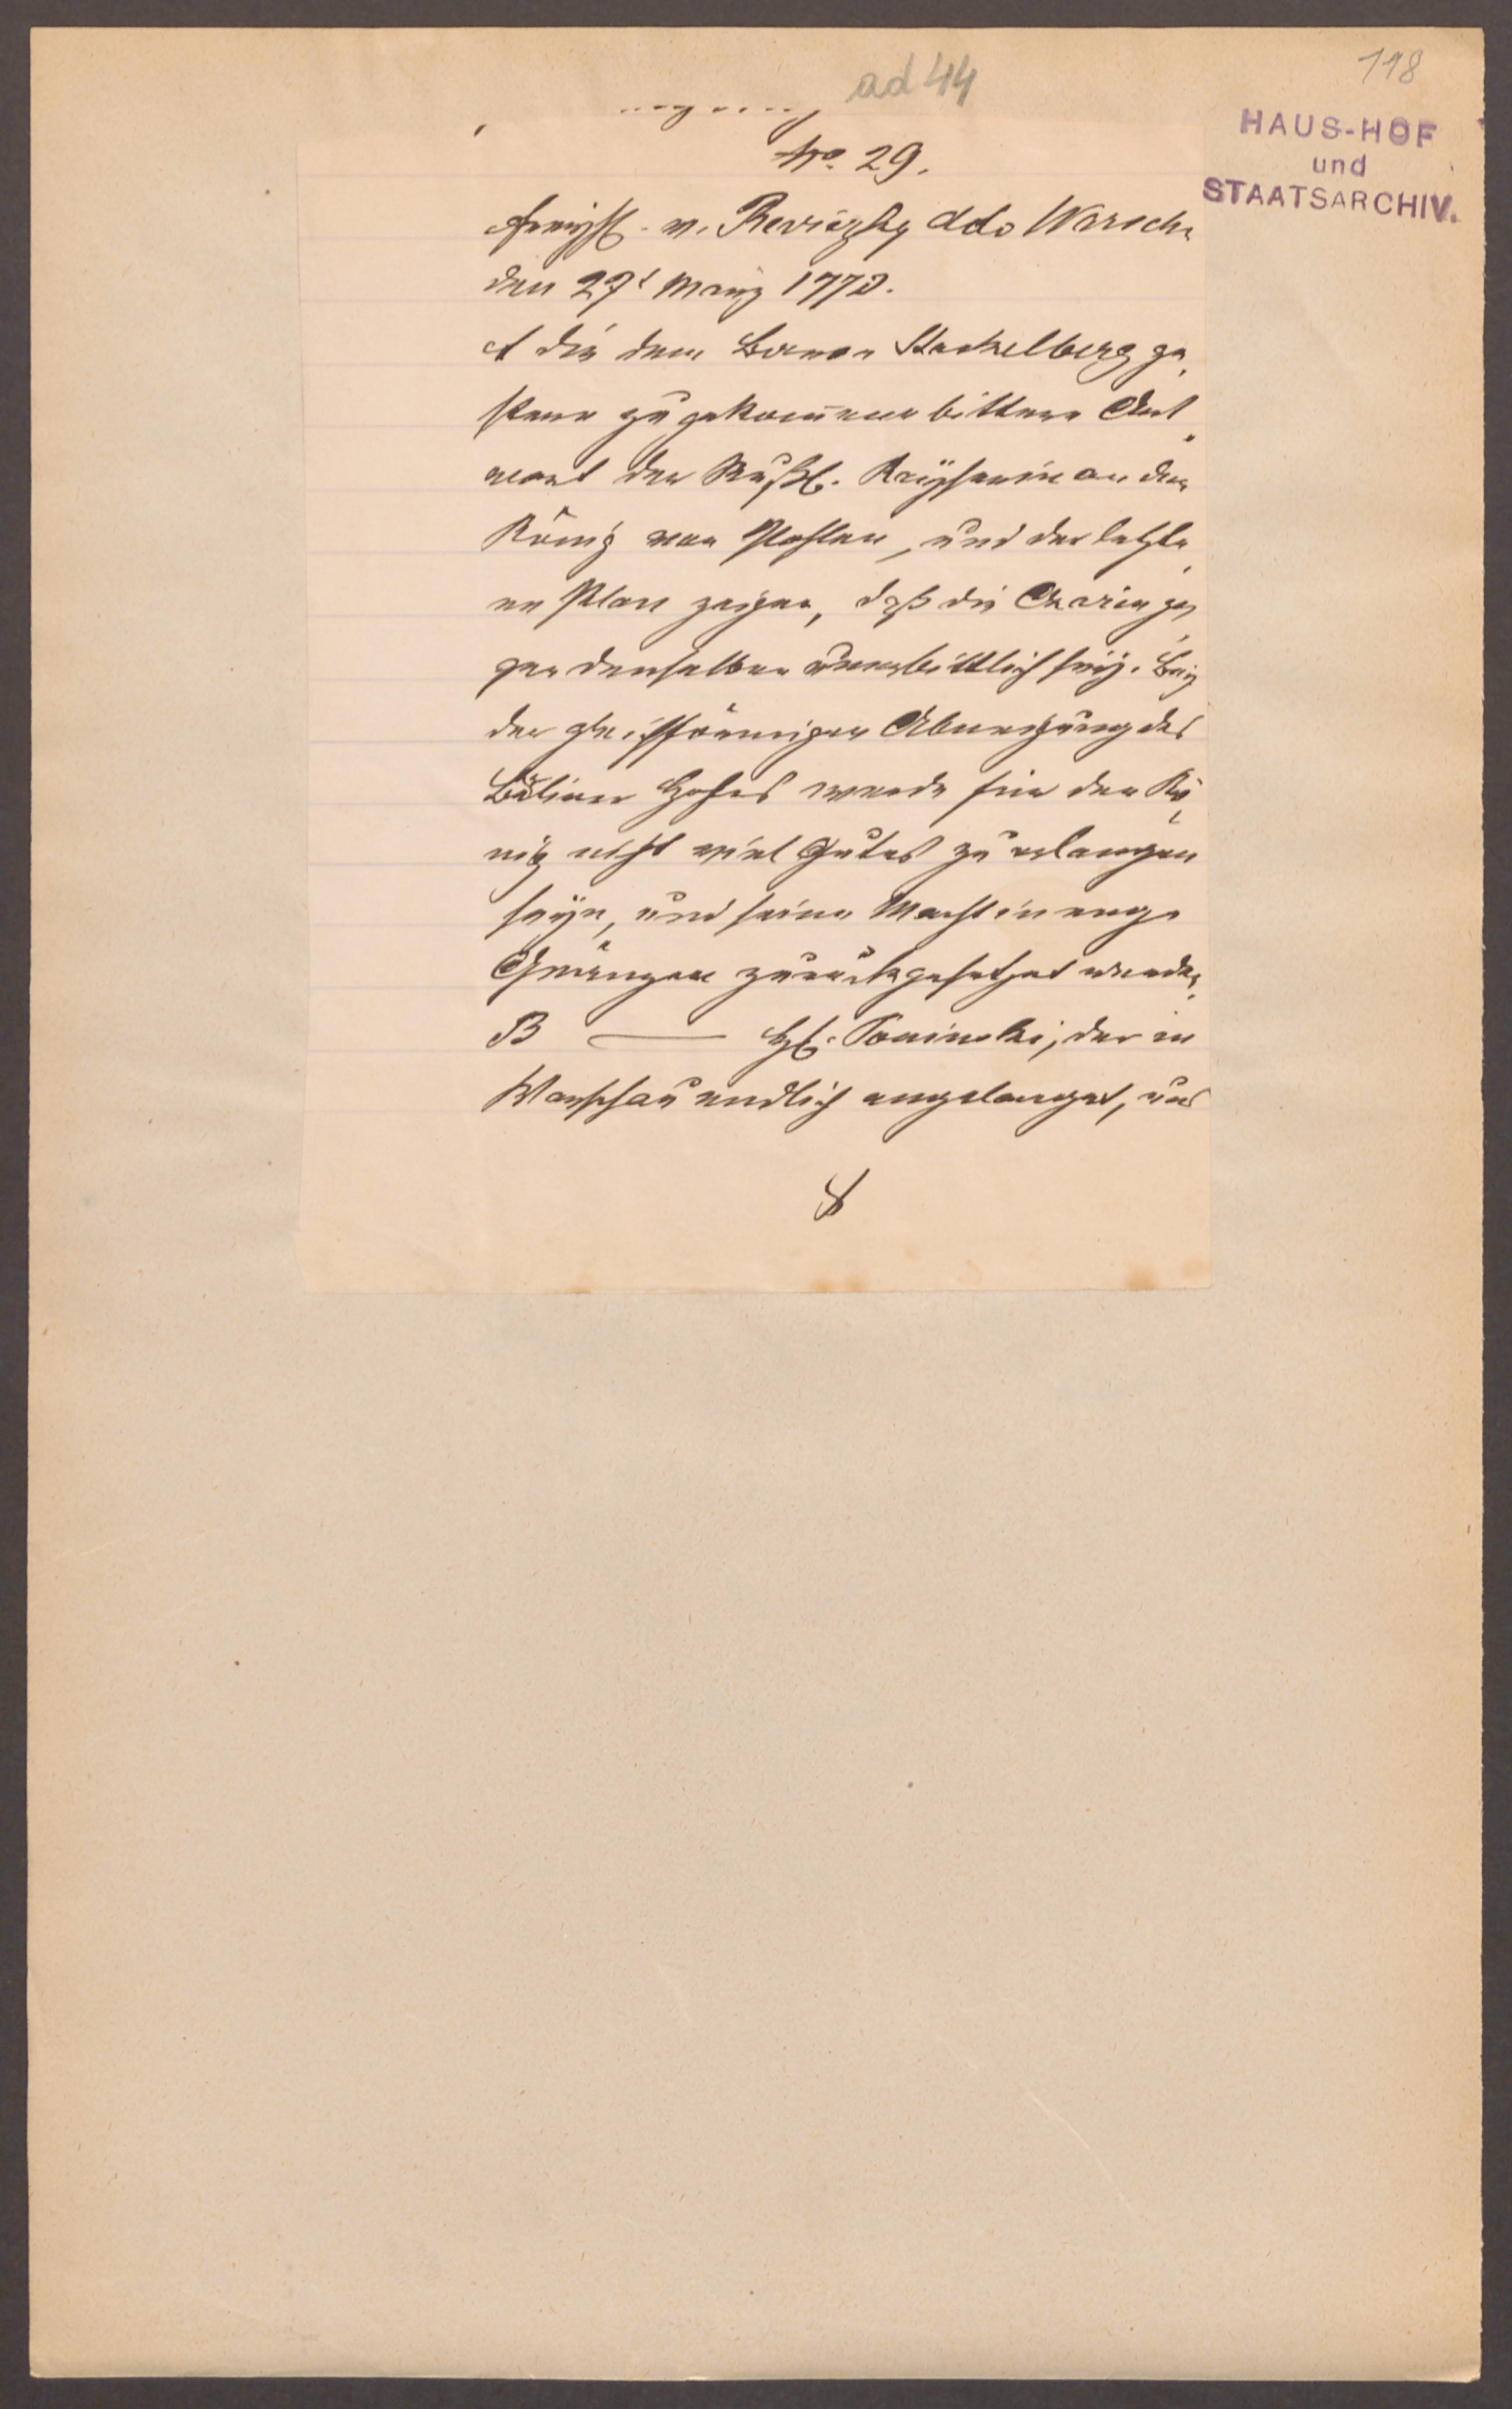 ad 44
118
HAUS-HOF
und
STAATSARCHIV.
No. 29.
v. Reviczky ddo Warsch.
den 27t März 1773.
A die dem Baron Stackelberg ge,
stern zugekommene bittere Ant„
wort der Rußl. Kayserin an den
König von Pohlen, und der letzte,
re Plan zeigen, daß die Czarin ge,
gen denselben unerbittlich sey. Bey
der gleichförmigen Abneigung des
Berliner Hofes werde für den Kö,
nig nicht viel Gutes zu erlangen
seyn, und seine Macht in enge
Gränzen zurückgesetzet werden.
B — H. Poninski, der in
Warschau endlich angelanget, und